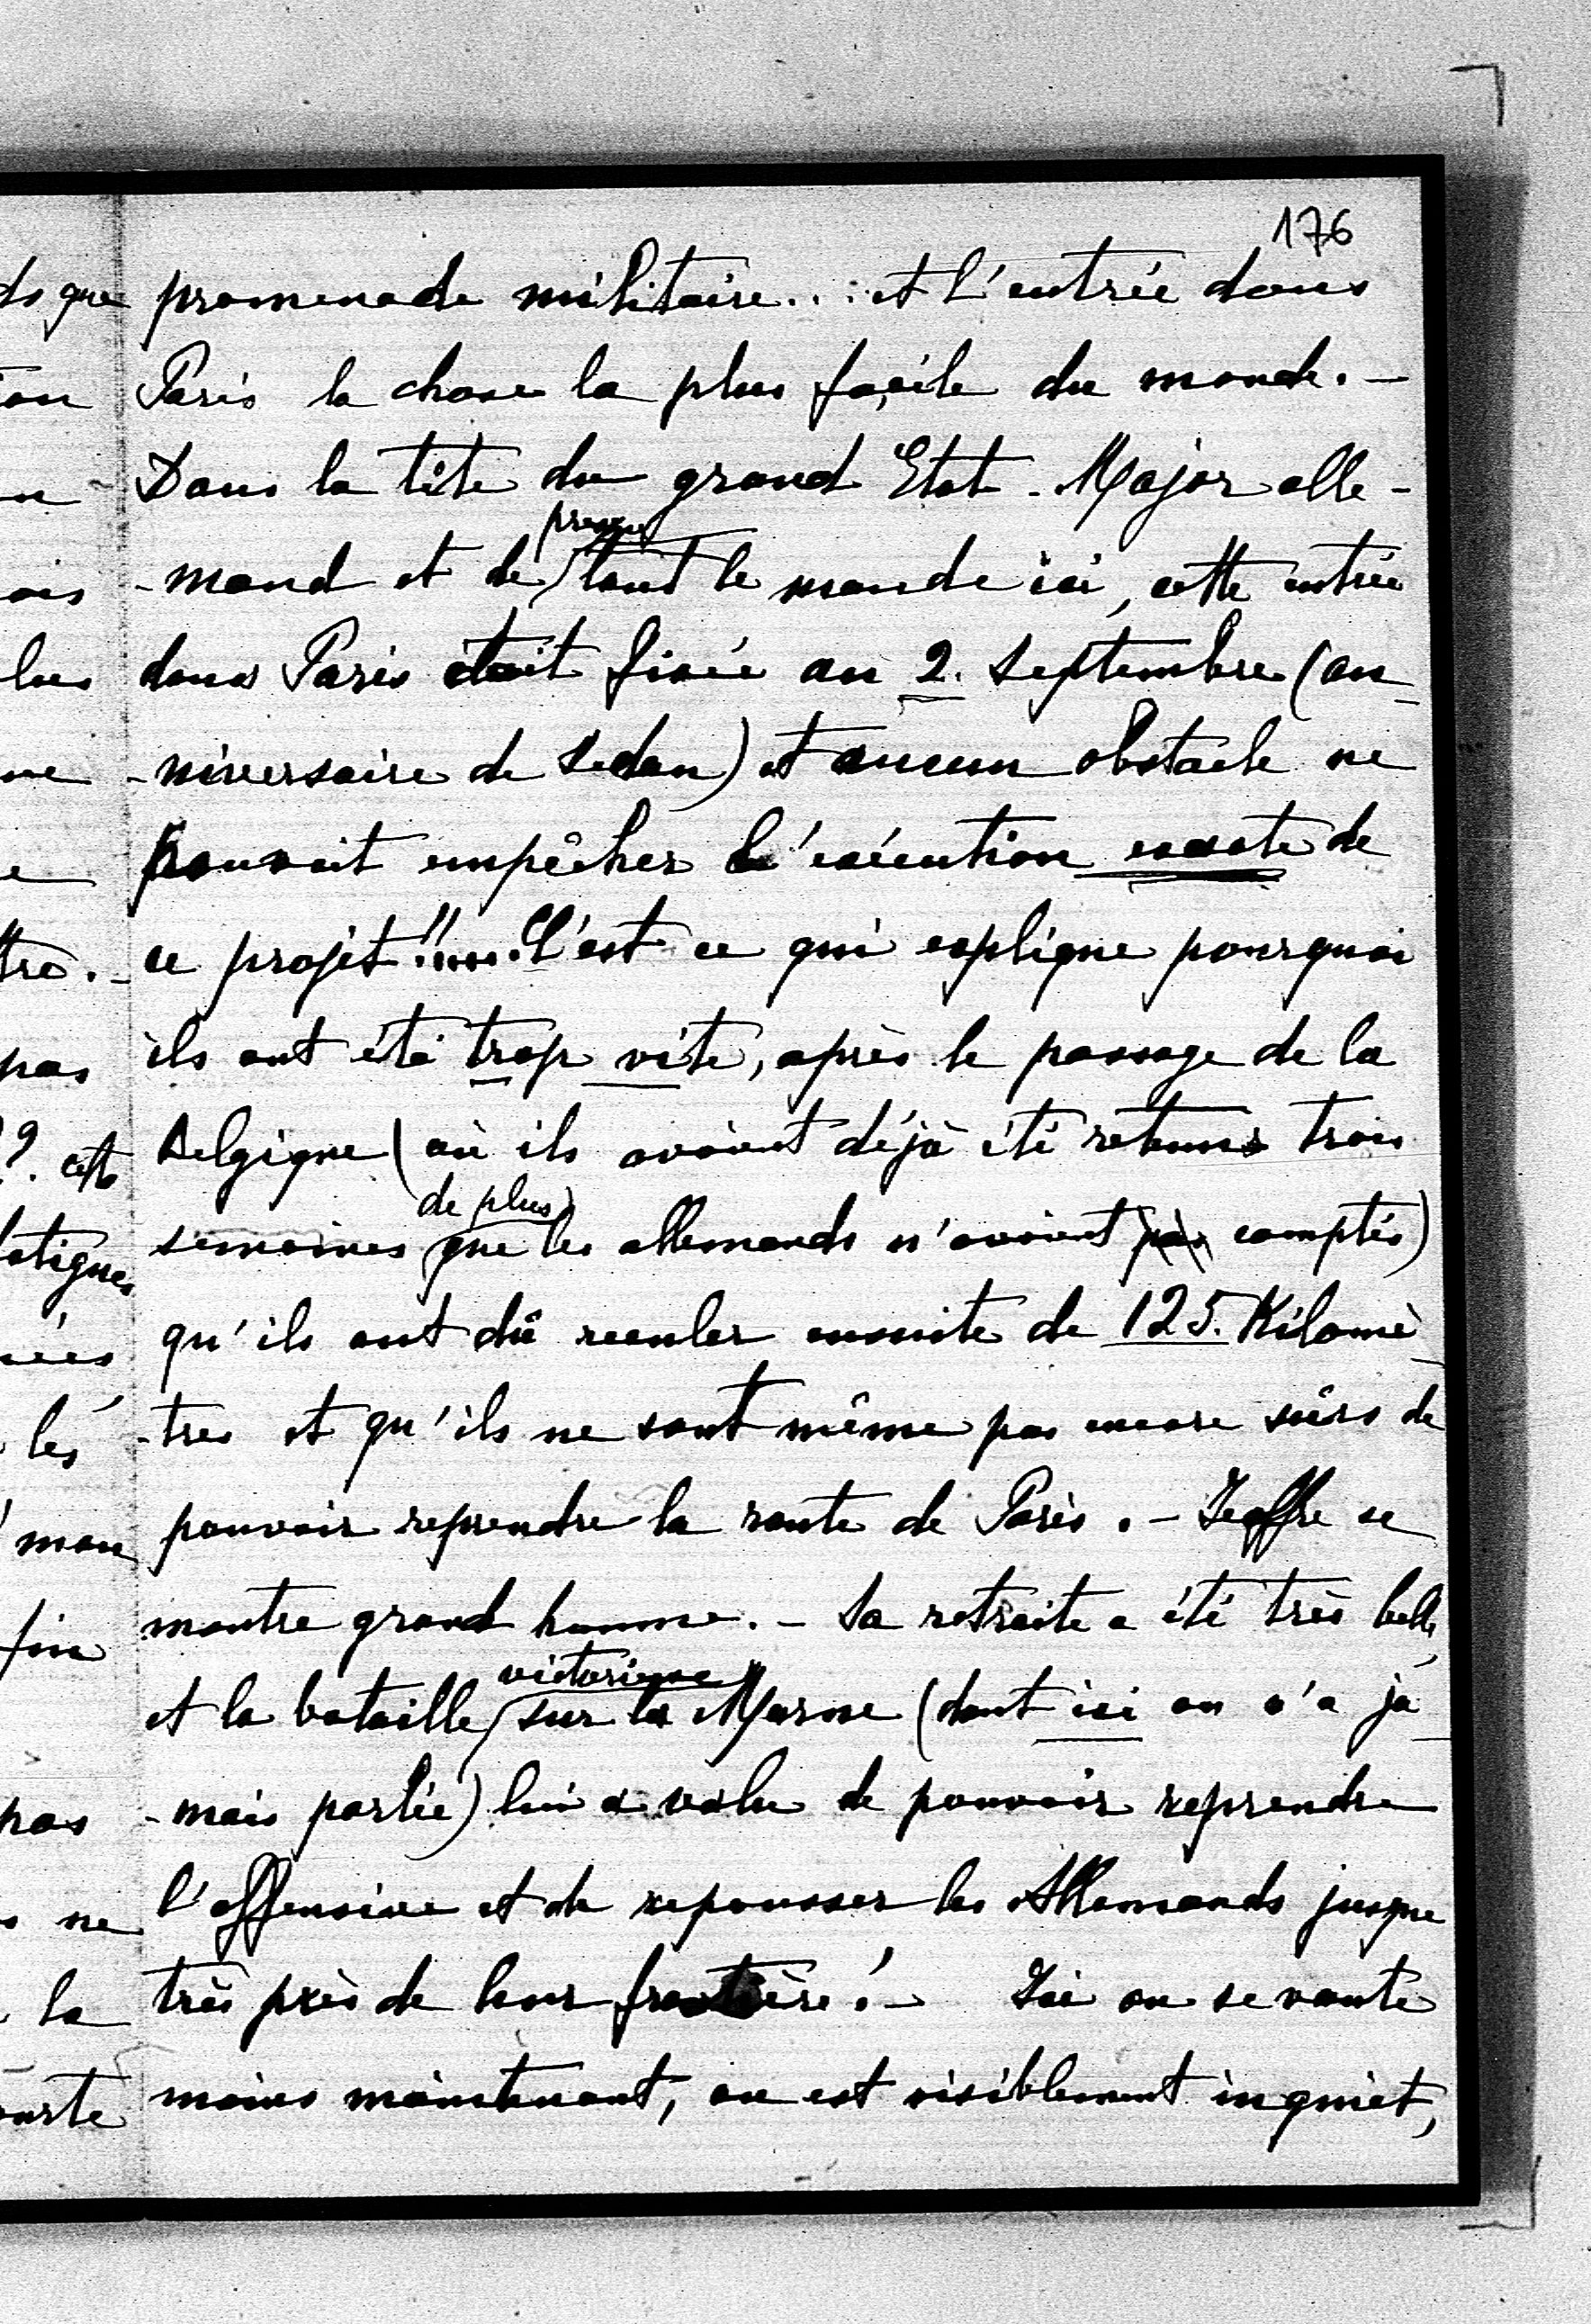 176
promenade militaire... et l'entrée dans
Paris la chose la plus facile du monde. —
Dans la tête du grand Etat-Major alle-
presque
-mand et de tout le monde ici, cette entrée
dans Paris était fixée au 2. Septembre (an-
-niversaire de Sedan) et aucun obstacle ne
pouvait empêcher l'exécution exacte de
ce projet!!.... C'est ce qui explique pourquoi
ils ont été trop vite, après le passage de la
Belgique (où ils avaient déjà été retenus trois
de plus
semaines que les allemands n'avaient pas comptés)
qu'ils ont dû reculer ensuite de 125. Kilomè-
-tres et qu'ils ne sont même pas encore sûrs de
pouvoir reprendre la route de Paris. — Joffre se
montre grand homme. — Sa retraite a été très belle,
victorieuse
et la bataille sur la Marne (dont ici on n'a ja-
-mais parlée) lui a valu de pouvoir reprendre
l'offensive et de repousser les Allemands jusque
très près de leur frontière! — Ici on se vante
moins maintenant, on est visiblement inquiet,
ds que
lus
ne
pas
fatigues
les
mon
fin
pas
ne
la